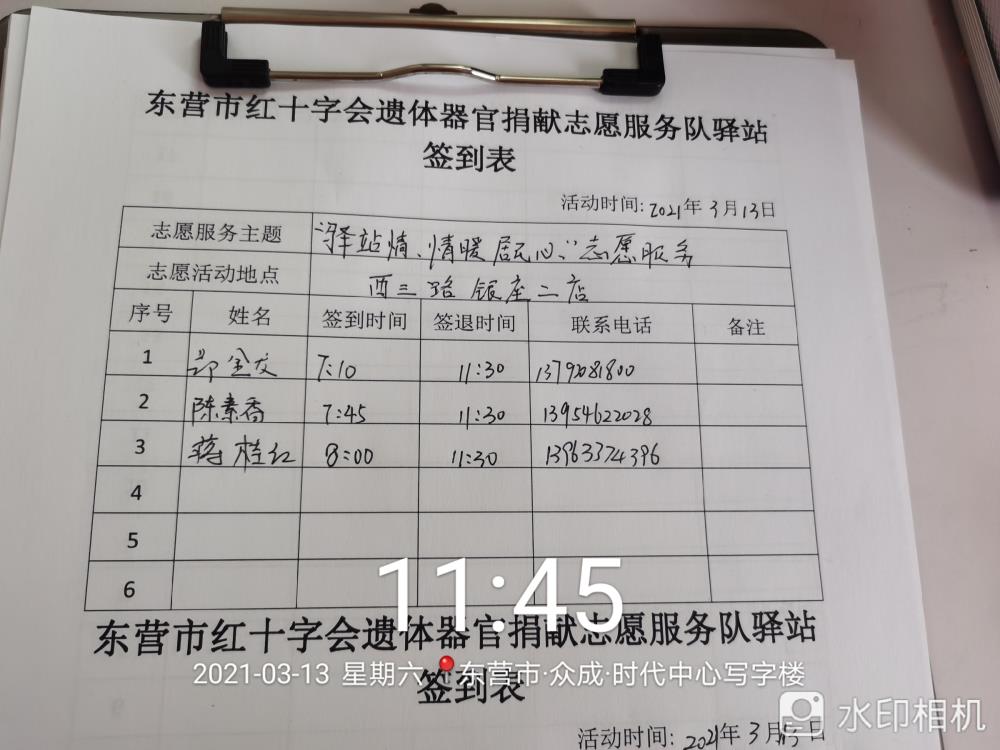 东营市红十字会遗体器官捐献志愿服务队驿站
签到表
活动时间:2021年3月13日
志愿服务主题 "驿站情、情暖居民心"志愿服务
志愿活动地点 西三路银座二店
序号 姓名 签到时间 签退时间 联系电话 备注
1 郭金友 7:10 11:30 13792081800
2 陈素香 7:45 11:30 13954622028
3 蒋桂红 8:00 11:30 13963374396
4
5
6
11:45
东营市红十字会遗体器官捐献志愿服务队驿站
2021-03-13 星期六 东营市·众成·时代中心写字楼
签到表
水印相机
活动时间:2021年3月13日